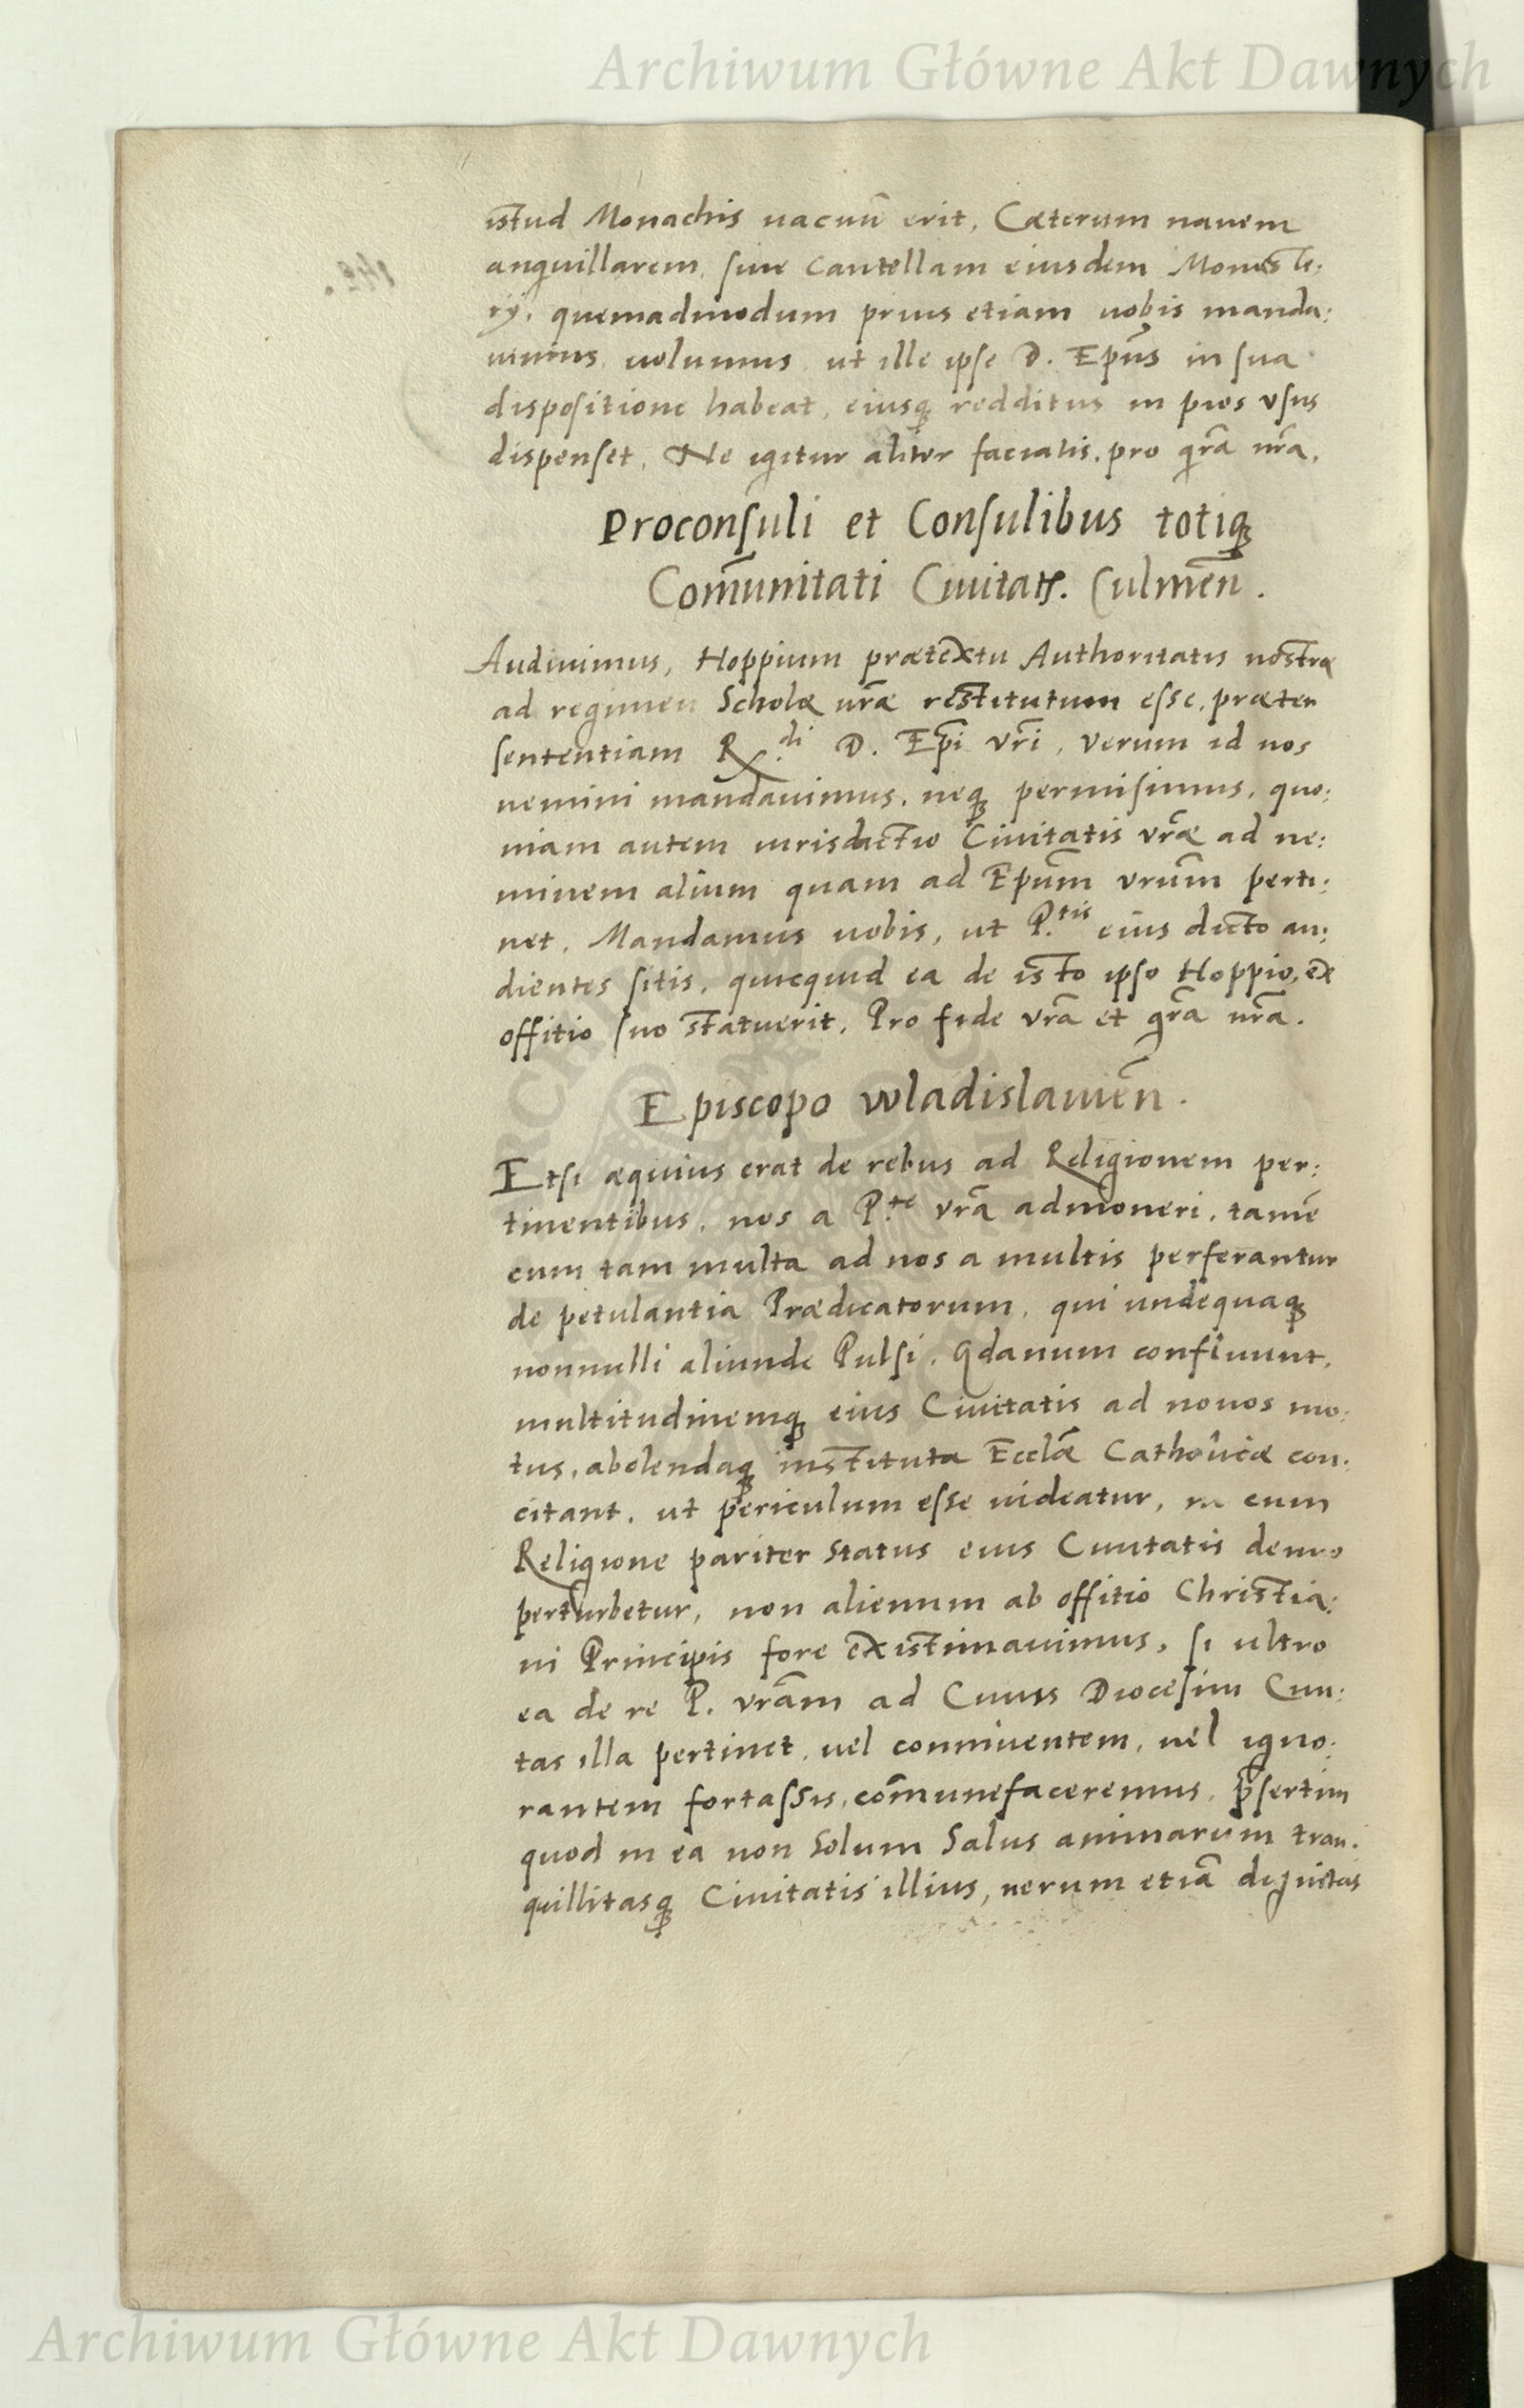 Archiwum Główne Akt Dawnych
istud Monachis uacuũ erit, Cæterum nauem
anquillarem, siue Cautellam eiusdem Monaste:
rÿ, quemadmodum prius etiam uobis manda:
uimus, uolumus, ut ille ipse D. Ep̃us in sua
dispositione habeat, eiusq̃ redditus in pios vsus
dispenset, Ne igitur aliter faciatis, pro gr̃a nr̃a.
Proconsuli et Consulibus totiq̃
Com̃unitati Ciuitatis. Culmeñ.
Audiuimus, Hoppium prætextu Authoritatis nostræ
ad regimen Scholæ ur̃æ restitutum esse, præter
sententiam R.di D. Ep̃i vr̃i, Verum id nos
nemini mandauimus, neq̃ permisimus, quo:
niam autem iurisdictio Ciuitatis vr̃æ ad ne:
minem alium quam ad Ep̃um vrũm perti:
net, Mandamus uobis, ut P.tis eius dicto au:
dientes sitis, quicquid ea de isto ipso Hoppio, ex
offitio suo statuerit, Pro fide vr̃a et gr̃a nr̃a.
Episcopo Wladislauieñ.
Etsi æquius erat de rebus ad Religionem per:
tinentibus, nos a P.te vr̃a admoneri, tamẽ
cum tam multa ad nos a multis perferantur
de petulantia Prædicatorum, qui undequaq̃
nonnulli aliunde Pulsi, Gdanum confluunt,
multitudinemq̃ eius Ciuitatis ad nouos mo:
tus, abolendaq̃ instituta Eccl̃æ Catholicæ con:
citant, ut periculum esse uideatur, ne cum
Religione pariter Status eius Ciuitatis denuo
perturbetur, non alienum ab offitio Christia:
ni Principis fore existimauimus, si ultro
ea de re P. vrãm ad Cuius Diocesim Ciui:
tas illa pertinet, uel conniuentem, uel igno:
rantem fortassis, com̃unefaceremus, p̃sertim
quod in ea non Solum Salus animarum tran:
quillitasq̃ Ciuitatis illius, uerum etiã dignitas
Archiwum Główne Akt Dawnych